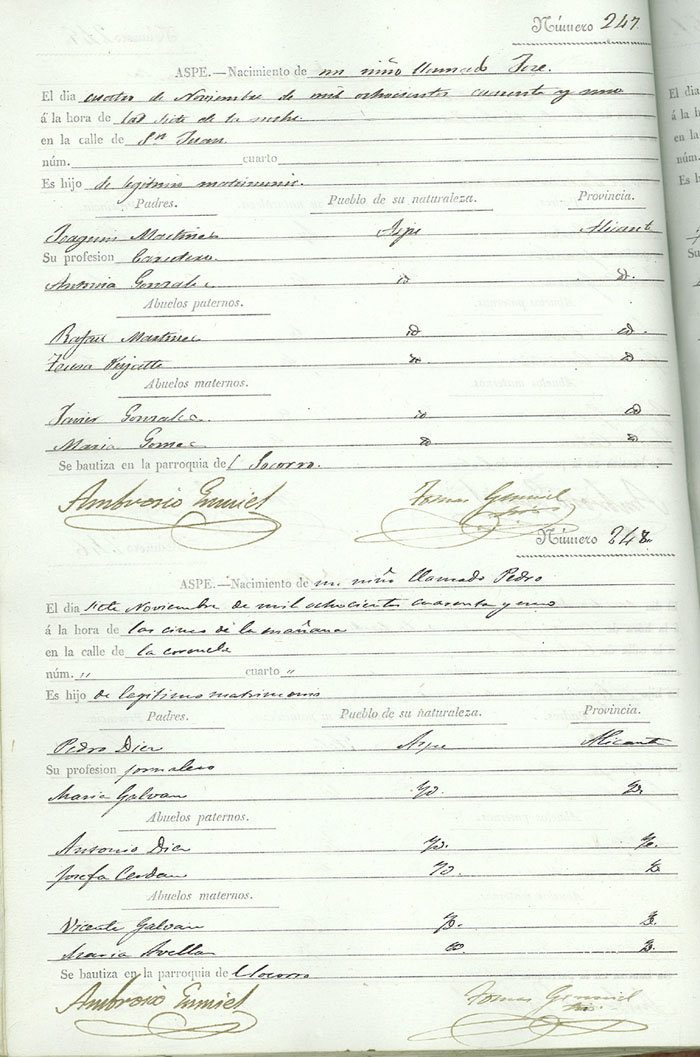 Número 247.
ASPE.—Nacimiento de un niño llamado Jose.
El dia cuatro de Noviembre de mil ochocientos cuarenta y uno
á la hora de las siete de la noche
en la calle de Sn Juan
núm. cuarto
Es hijo de legitimo matrimonio.
Padres. Pueblo de su naturaleza. Provincia.
Joaquin Martinez Aspe Alicante
Su profesion
Antonia Gonzalez id id.
Abuelos paternos.
Rafael Martinez id id.
Teresa id id
Abuelos maternos.
Javier Gonzalez id id
Maria Gomez id id
Se bautiza en la parroquia del Socorro.
Ambrosio Tomas
Número 248.
ASPE.—Nacimiento de un niño llamado Pedro
El dia siete Noviembre de mil ochocientos cuarenta y uno
á la hora de las cinco de la mañana
en la calle de la coronela
núm. „ cuarto „
Es hijo de legitimo matrimonio
Padres. Pueblo de su naturaleza. Provincia.
Pedro Diez Aspe Alicante
Su profesion jornalero
Maria Galvan Yd. Yd.
Abuelos paternos.
Antonio Diez Yd. Yd.
Josefa Cerdan Yd. Yd
Abuelos maternos.
Vicente Galvan Yd. Yd.
Maria Avellan Yd.
Se bautiza en la parroquia del Socorro
Ambrosio Tomas